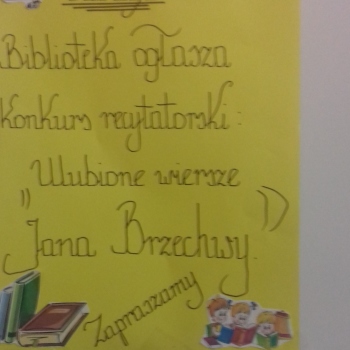 Biblioteka ogłasza
Konkurs recytatorski:
Ulubione wiersze
"Jana Brzechwy."
Zapraszamy